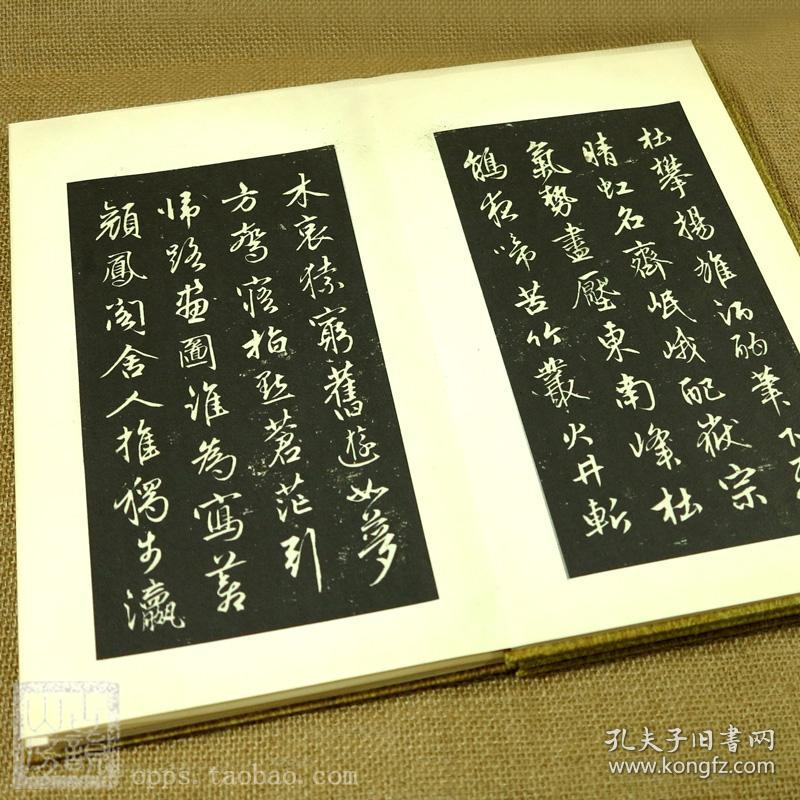 杜攀揚雄泝酌筆下
晴虹名齊岷峨配嶽宗
氣勢盡壓東南峰杜
鵑夜啼苦竹叢火井斬
木哀猿窮舊遊如夢
方騖寤指點蒼茫引
歸路畫圖誰為寫蒼
顏鳳閣舍人推獨步瀛
孔夫子旧書网
www.kongfz.com
opps.taobao.com